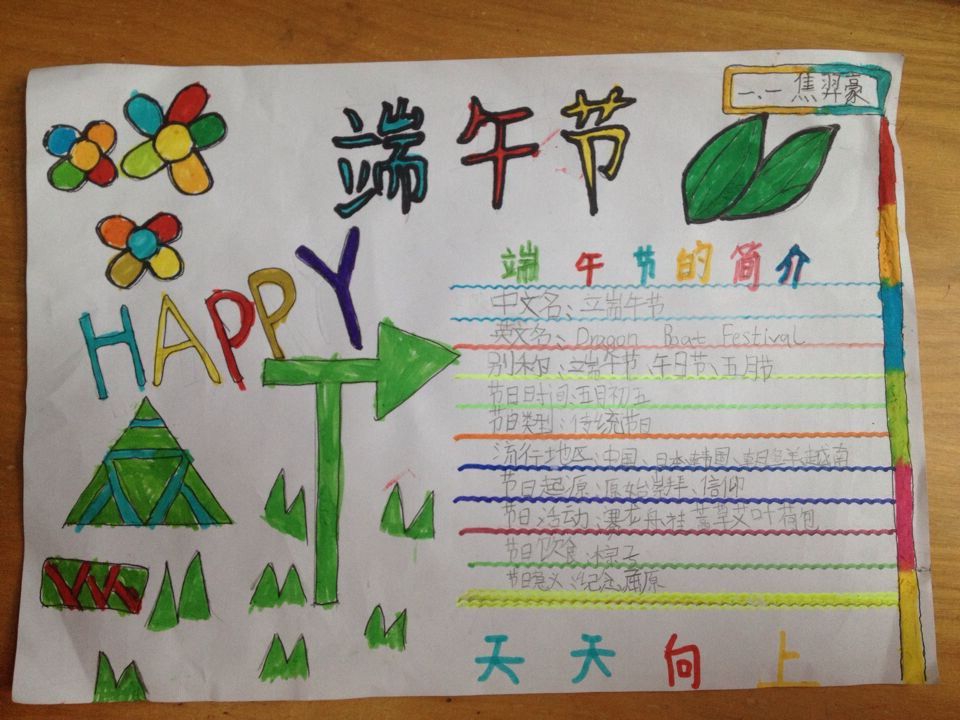 一.一 焦羿豪
端午节
HAPPY
端午节的简介
中文名:立端午节
英文名:Dragon Boat Festival
别称:立端午节、午日节、五月节
节日时间:五月初五
节日类型:传统节日
流行地区:中国、日本、韩国、朝鲜、越南
节日起源:原始崇拜、信仰
节日活动:赛龙舟挂菖草艾叶荷包
节日饮食:粽子
节日意义:纪念屈原
天天向上